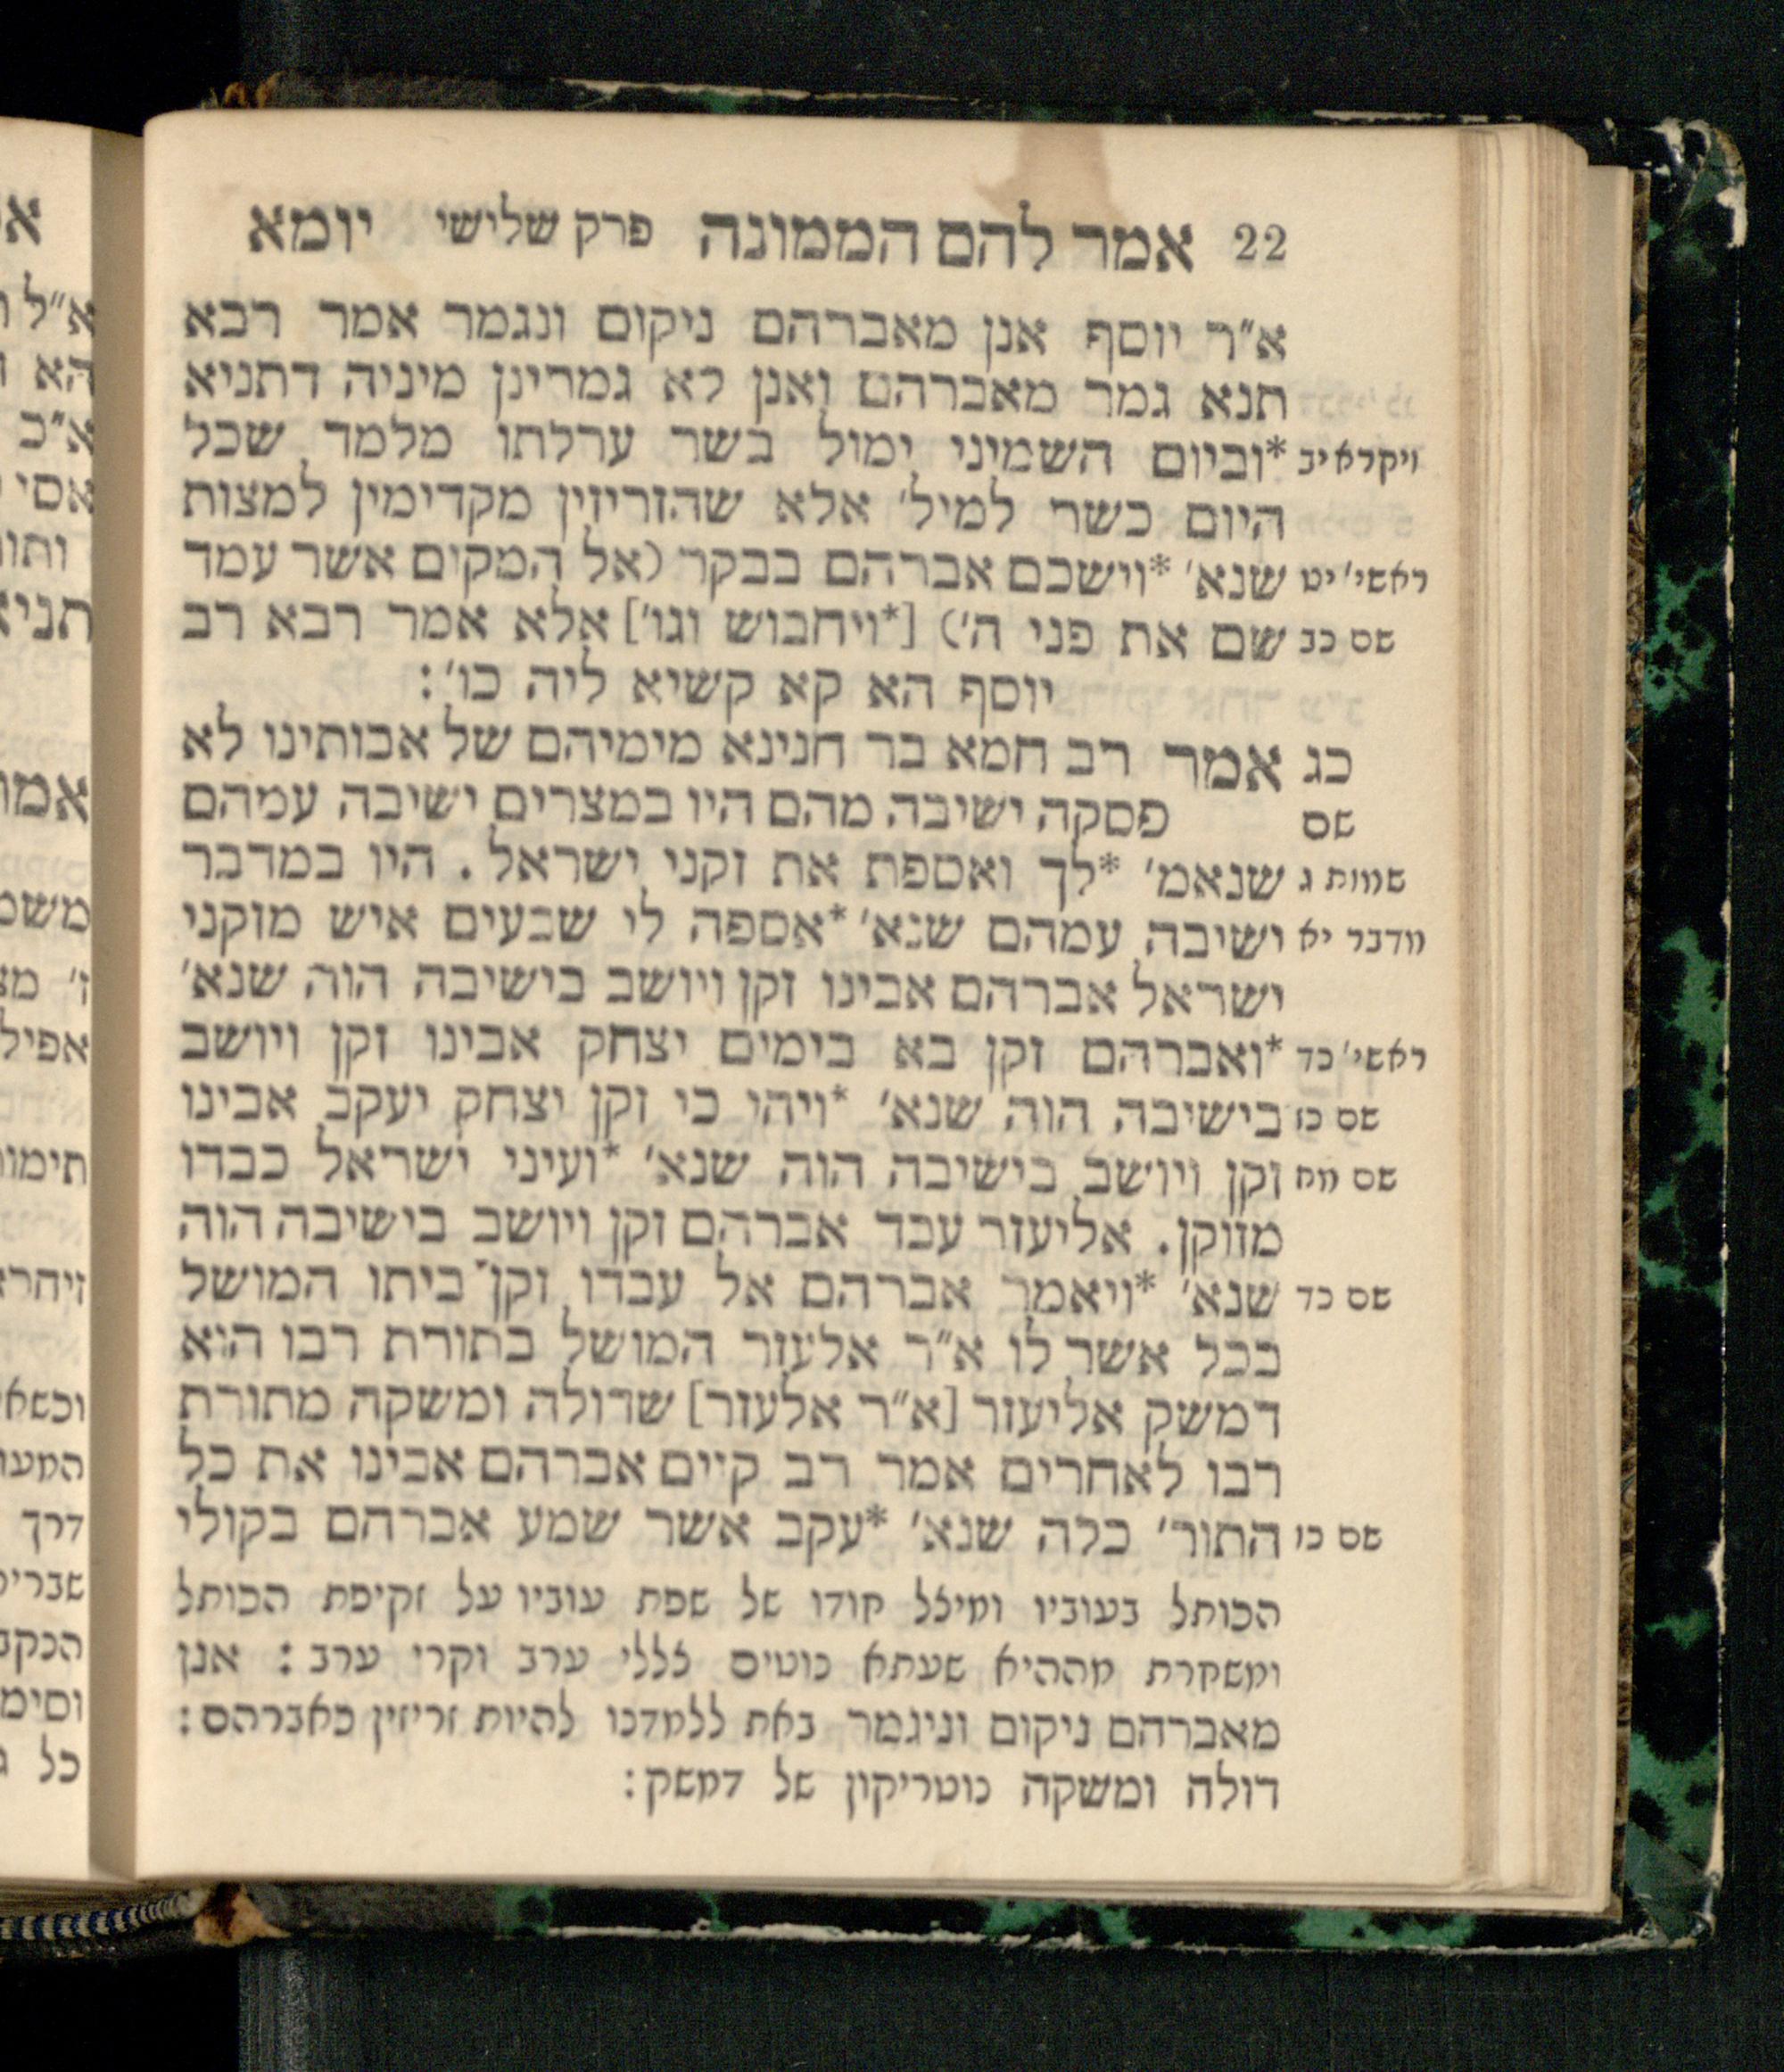 22 אמר להם הממונה פרק שלישי יומא
א״ר יוסף אנן מאברהם ניקום ונגמר אמר רבא
תנא גמר מאברהם ואנן לא גמרינן מיניה דתניא
ויקרא יב *וביום השמיני ימול בשר ערלתו מלמד שכל
היום כשר למיל׳ אלא שהזריזין מקדימין למצות
ראשי׳ יט שנא׳ *וישכם אברהם בבקר (אל המקום אשר עמד
שם כב שם את פני ה׳) [*ויחבוש וגו׳] אלא אמר רבא רב
יוסף הא קא קשיא ליה כו׳:
כג אמר רב חמא בר חנינא מימיהם של אבותינו לא
שם פסקה ישיבה מהם היו במצרים ישיבה עמהם
שמות ג שנאמ׳ *לך ואספת את זקני ישראל. היו במדבר
מדבר יא וישיבה עמהם שנא׳ *אספה לי שבעים איש מזקני
ישראל אברהם אבינו זקן ויושב בישיבה הוה שנא׳
ראשי׳ כד *ואברהם זקן בא בימים יצחק אבינו זקן ויושב
שם כז בישיבה הוה שנא׳ *ויהי כי זקן יצחק יעקב אבינו
שם מח זקן ויושב בישיבה הוה שנא׳ *ועיני ישראל כבדו
מזוקן. אליעזר עבד אברהם זקן ויושב בישיבה הוה
שם כד שנא׳ *ויאמר אברהם אל עבדו זקן ביתו המושל
בכל אשר לו א״ר אלעזר המושל בתורת רבו הוא
דמשק אליעזר [א״ר אלעזר] שדולה ומשקה מתורת
רבו לאחרים אמר רב קיים אברהם אבינו את כל
שם כו התור׳ כלה שנא׳ *עקב אשר שמע אברהם בקולי
הכותל בעוביו ומיצל חודו של שפת עוביו על זקיפת הכותל
ומשקרת מההיא שעתא נוטים צללי ערב וקרי ערב: אנן
מאברהם ניקום וניגמר באת ללמדנו להיות זריזין כאברהם:
דולה ומשקה נוטריקון של דמשק: